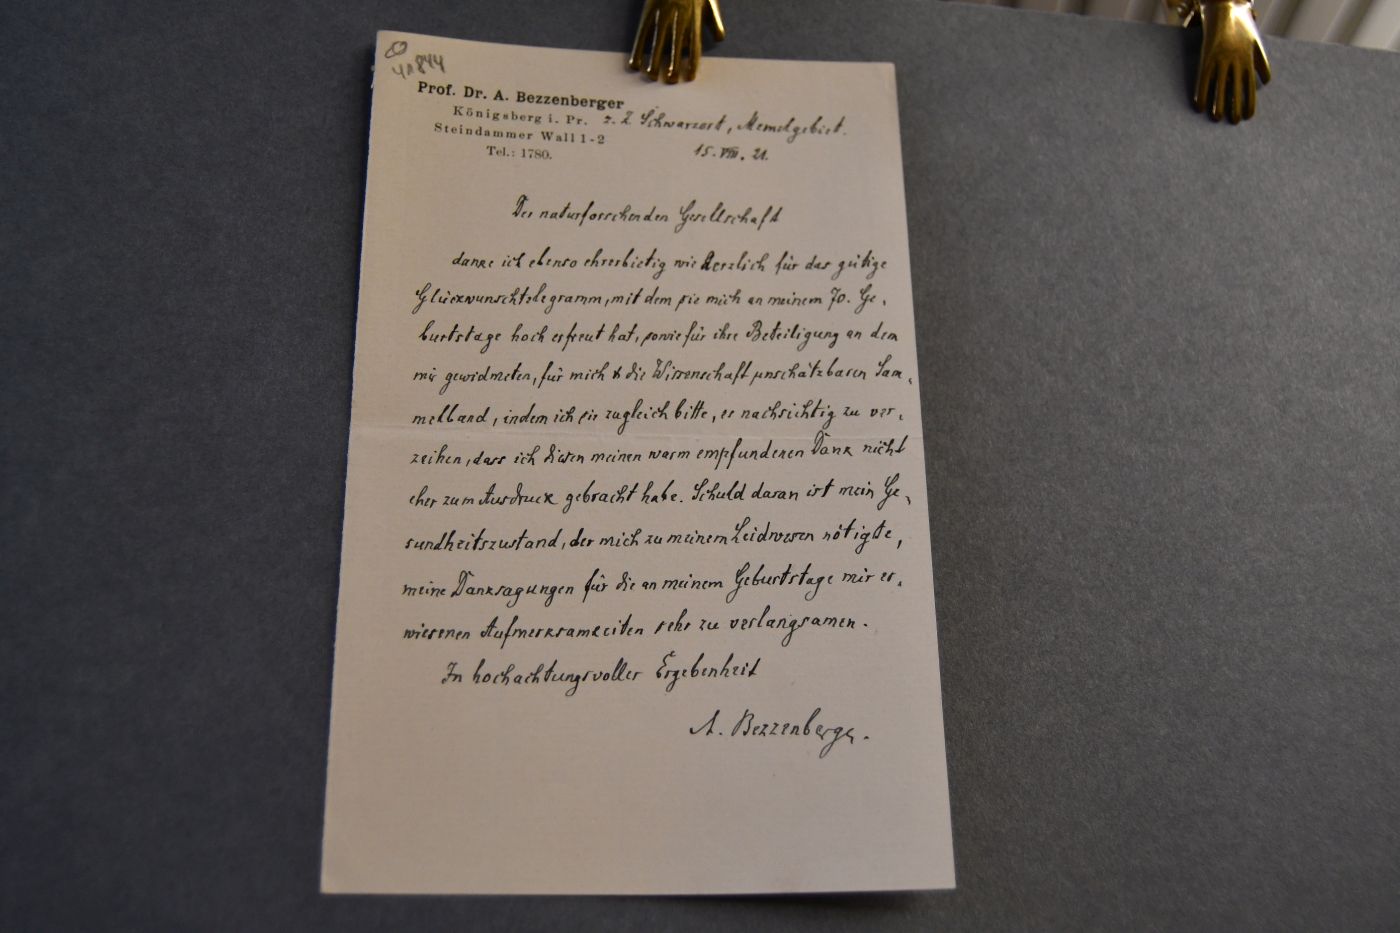 41844
Prof. Dr. A. Bezzenberger
Königsberg i. Pr. z. Z. Schwarzort, Memelgebiet.
Steindammer Wall 1-2
Tel.: 1780. 15. VIII. 21.
Der naturforschenden Gesellschaft
danke ich ebenso ehrerbietig wie herzlich für das gütige
Glückwunschtelegramm, mit dem sie mich an meinem 70. Ge-
burtstage hoch erfreut hat, sowie für ihre Beteiligung an dem
mir gewidmeten, für mich & die Wissenschaft unschätzbaren Sam-
melband, indem ich sie zugleich bitte, es nachsichtig zu ver-
zeihen, dass ich diesen meinen warm empfundenen Dank nicht
eher zum Ausdruck gebracht habe. Schuld daran ist mein Ge-
sundheitszustand, der mich zu meinem Leidwesen nötigte,
meine Danksagungen für die an meinem Geburtstage mir er-
wiesenen Aufmerksamkeiten sehr zu verlangsamen.
In hochachtungsvoller Ergebenheit
A. Bezzenberger.